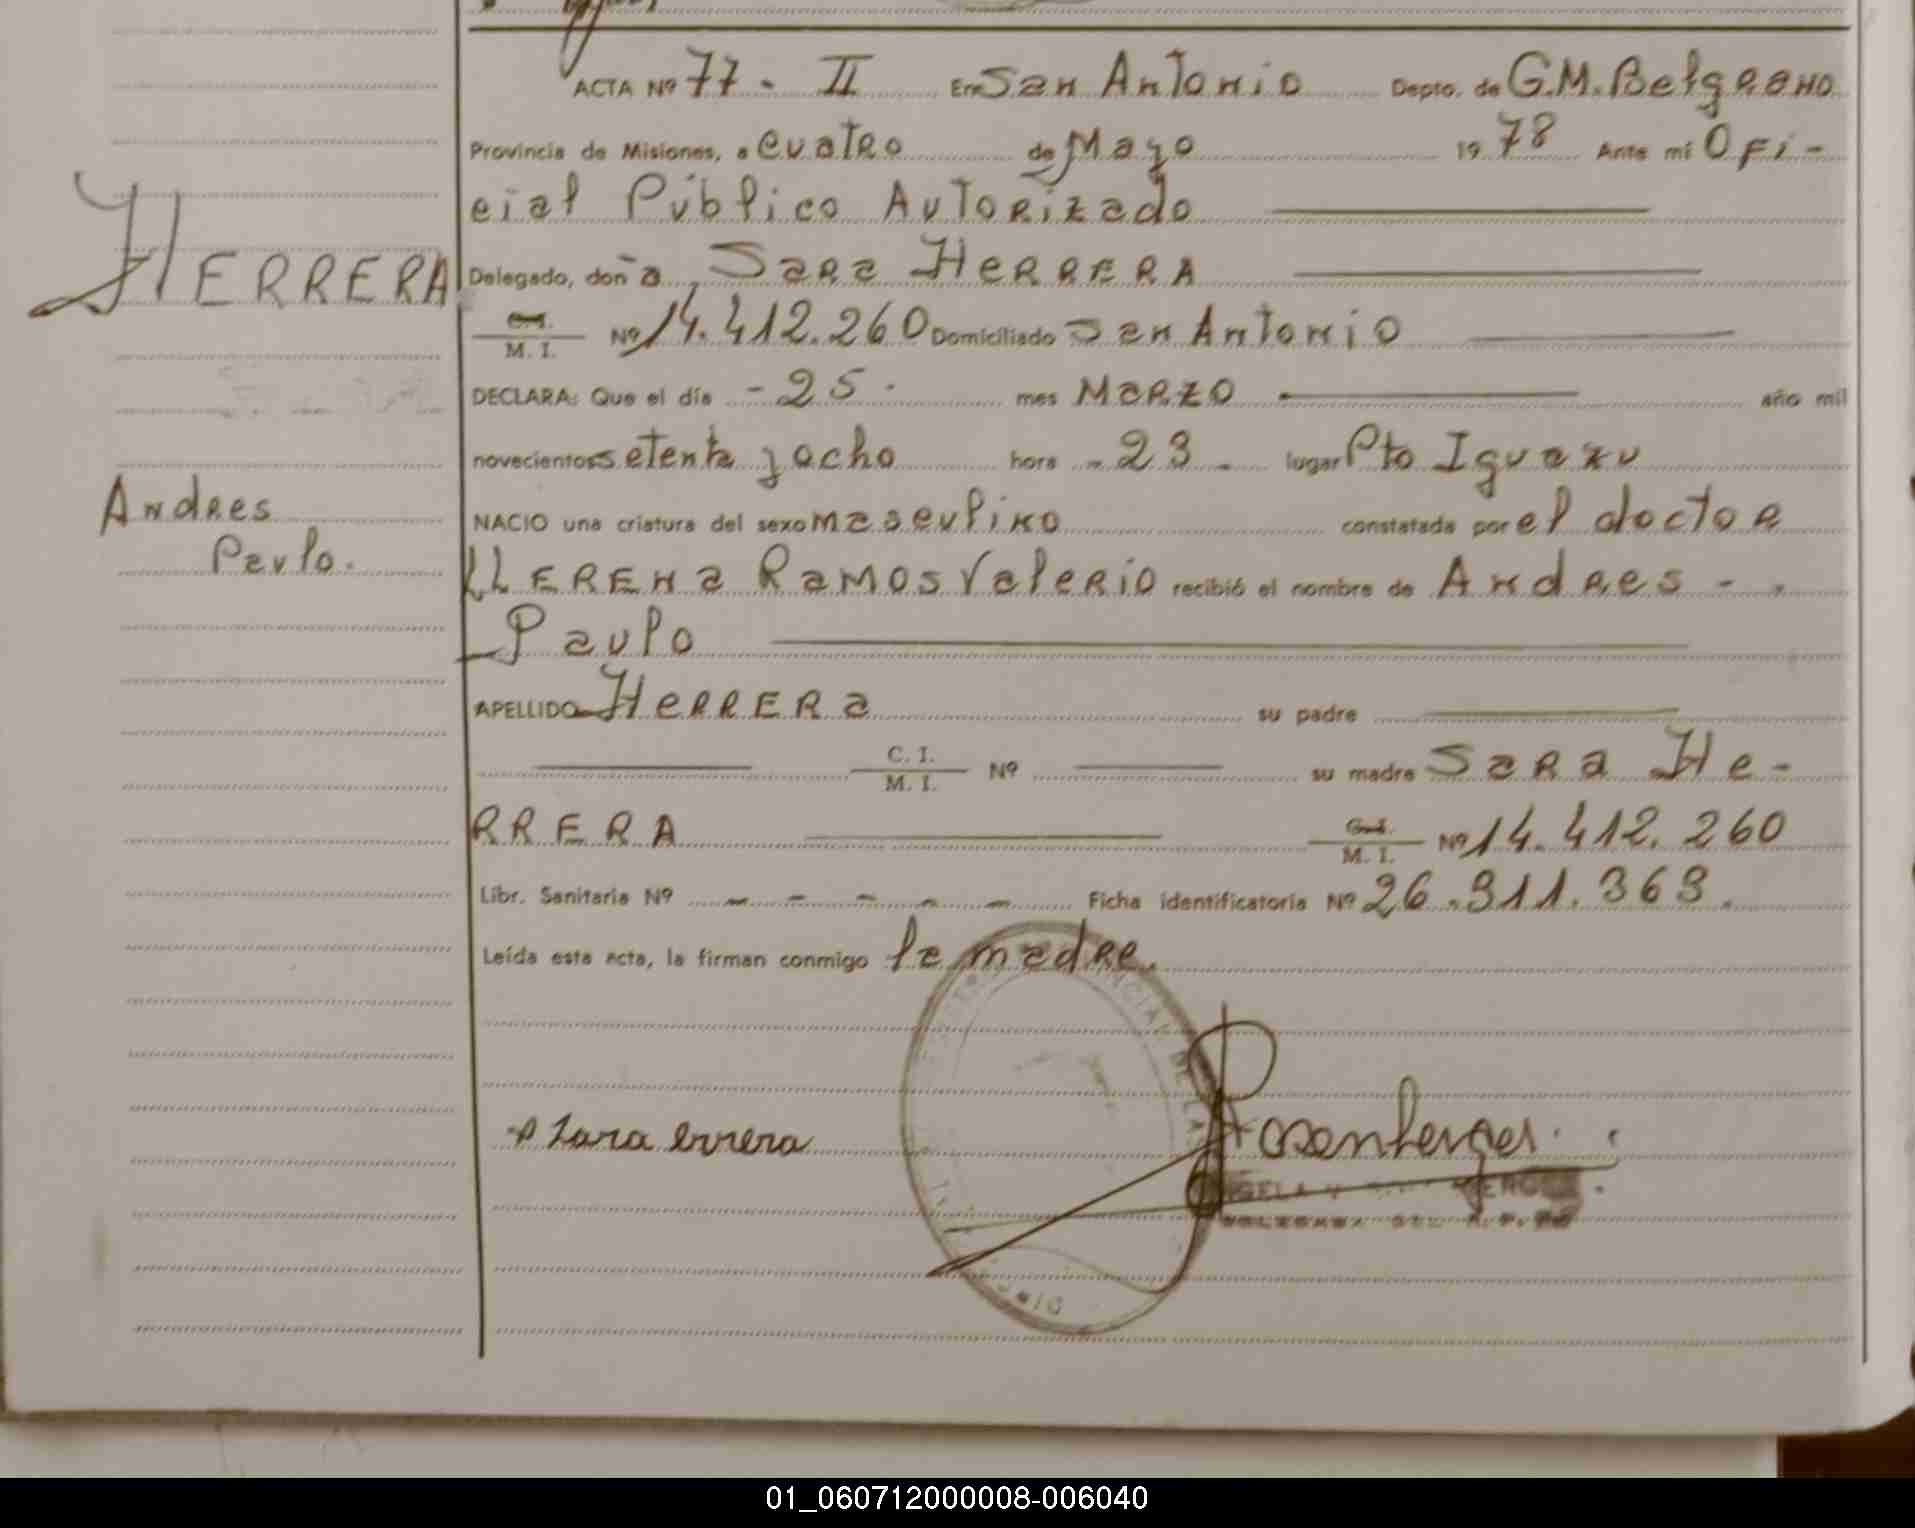 ACTA Nº 77 - II En San Antonio Depto. de G.M. Belgrano
Provincia de Misiones, a cuatro de Mayo 19 78 Ante mi Ofi-
cial Público Autorizado
HERRERA
Delegado, don̄a Sara HERRERA
C.I. / M. I. Nº 14.412.260 Domiciliado San Antonio
DECLARA: Que el día - 25 - mes Marzo año mil
novecientos setenta y ocho hora - 23 - lugar Pto Iguazu
Andres
NACIO una criatura del sexo masculino constatada por el doctor
Paulo.
LLERENA Ramos Valerio recibió el nombre de Andres - -
Paulo
APELLIDO HERRERA su padre
C. I. / M. I. Nº su madre Sara He-
RRERA C.I. / M. I. Nº 14.412.260
Libr. Sanitaria Nº - - - - - Ficha identificatoria Nº 26.311.363.
Leída esta acta, la firman conmigo la madre.
Zara errera
01_060712000008-006040